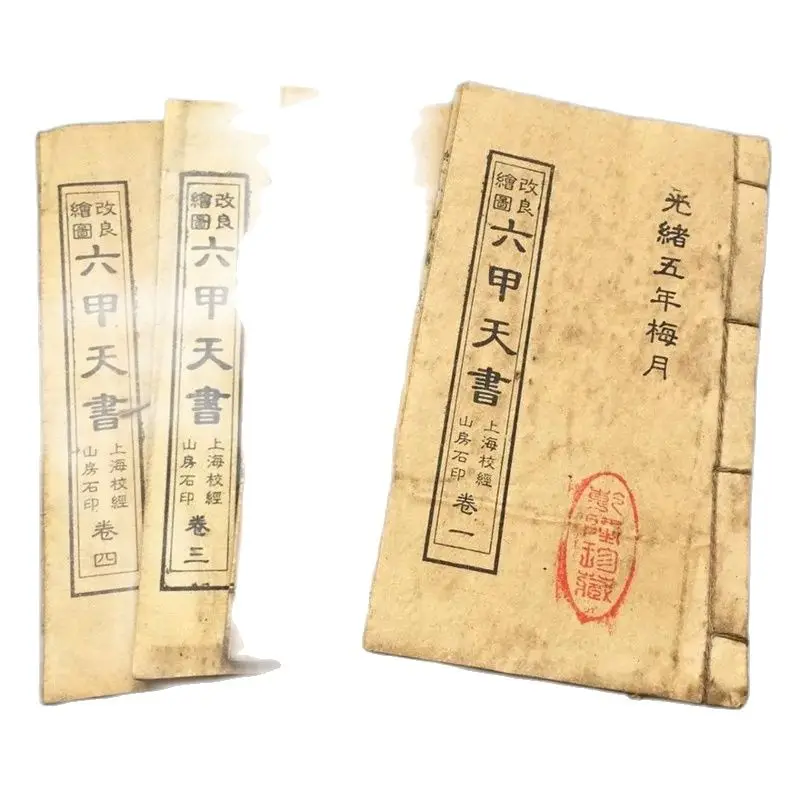 光緒五年梅月
改良
繪圖
六甲天書
上海校經
山房石印
卷一
珍藏
改良
繪圖
六甲天書
上海校經
山房石印
卷三
改良
繪圖
六甲天書
上海校經
山房石印
卷四